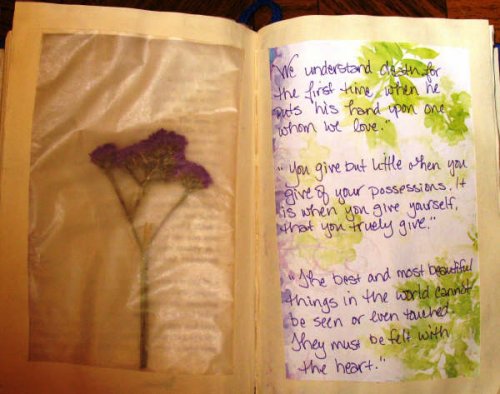 We understand death for
the first time when he
puts his hand upon one
whom we love."
"You give but little when you
give of your possessions. It
is when you give yourself,
that you truely give."
"The best and most beautiful
things in the world cannot
be seen or even touched.
They must be felt with
the heart."